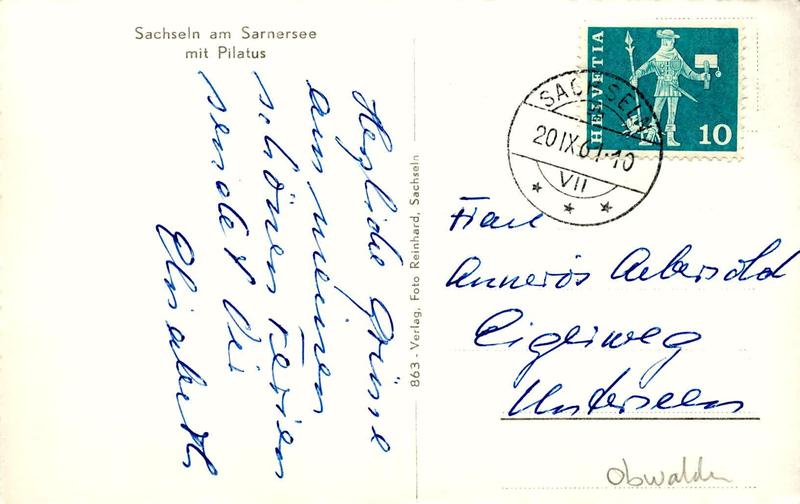 Sachseln am Sarnersee
mit Pilatus
Herzliche Grüsse
aus meinen
schönen Ferien
sendet Dir
Elisabeth
863 - Verlag, Foto Reinhard, Sachseln
HELVETIA
10
SACHSELN
20.IX.61-10
VII
Frau
Annerös Aebersold
Eigerweg
Unterseen
Obwalden